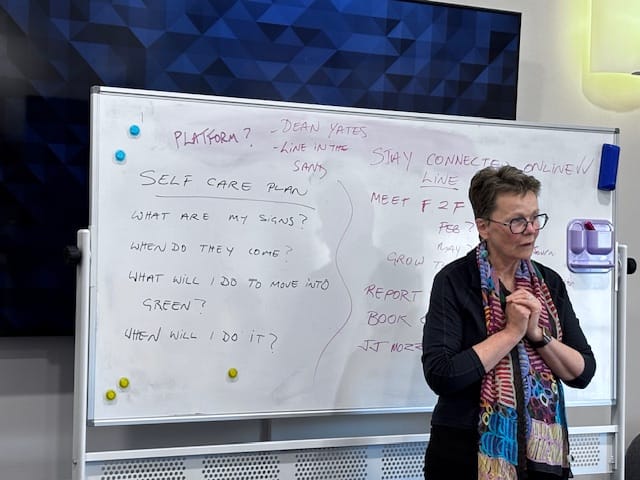 PLATFORM?
- DEAN YATES
- LINE IN THE
SAND
SELF CARE PLAN
WHAT ARE MY SIGNS?
WHEN DO THEY COME?
WHAT WILL I DO TO MOVE INTO
GREEN?
WHEN WILL I DO IT?
STAY CONNECTED ONLINE
LINE
MEET F 2 F
FEB?
MAY?
GROW
REPORT
BOOK
JJ